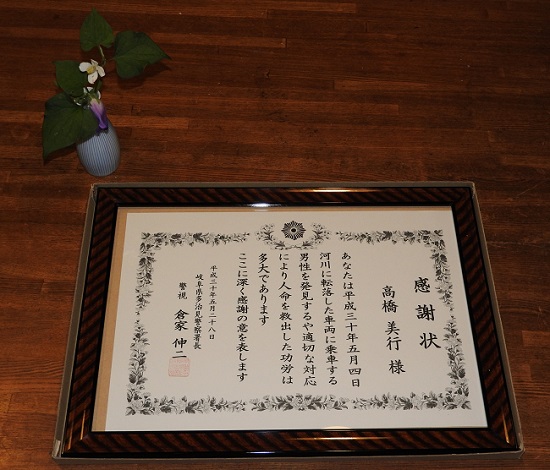 感謝状
高橋美行様
あなたは平成三十年五月四日
河川に転落した車両に乗車する
男性を発見するや適切な対応
により人命を救出した功労は
多大であります
ここに深く感謝の意を表します
平成三十年五月二十八日
岐阜県多治見警察署長
警視 倉家伸二